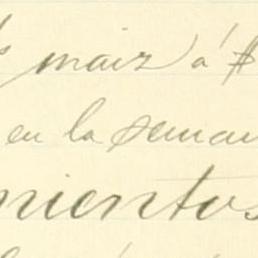 maiz á $
en la seman
mientos